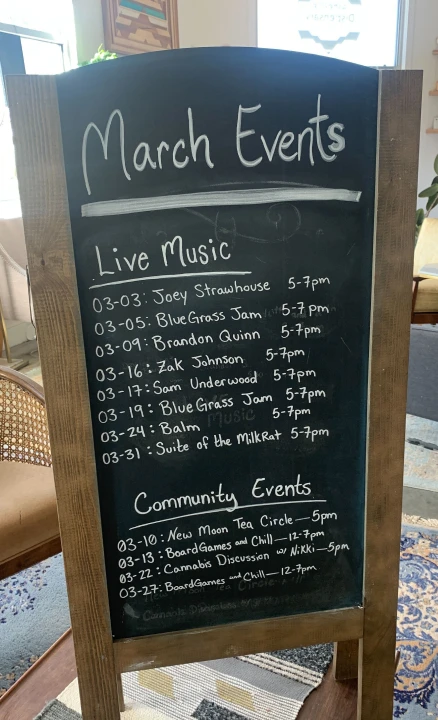 March Events
Live Music
03-03: Joey Strawhouse 5-7pm
03-05: BlueGrass Jam 5-7pm
03-09: Brandon Quinn 5-7pm
03-16: Zak Johnson 5-7pm
03-17: Sam Underwood 5-7pm
03-19: BlueGrass Jam 5-7pm
03-24: Balm 5-7pm
03-31: Suite of the MilkRat 5-7pm
Community Events
03-10: New Moon Tea Circle—5pm
03-13: BoardGames and Chill—12-7pm
03-22: Cannabis Discussion w/ Nikki—5pm
03-27: BoardGames and Chill—12-7pm